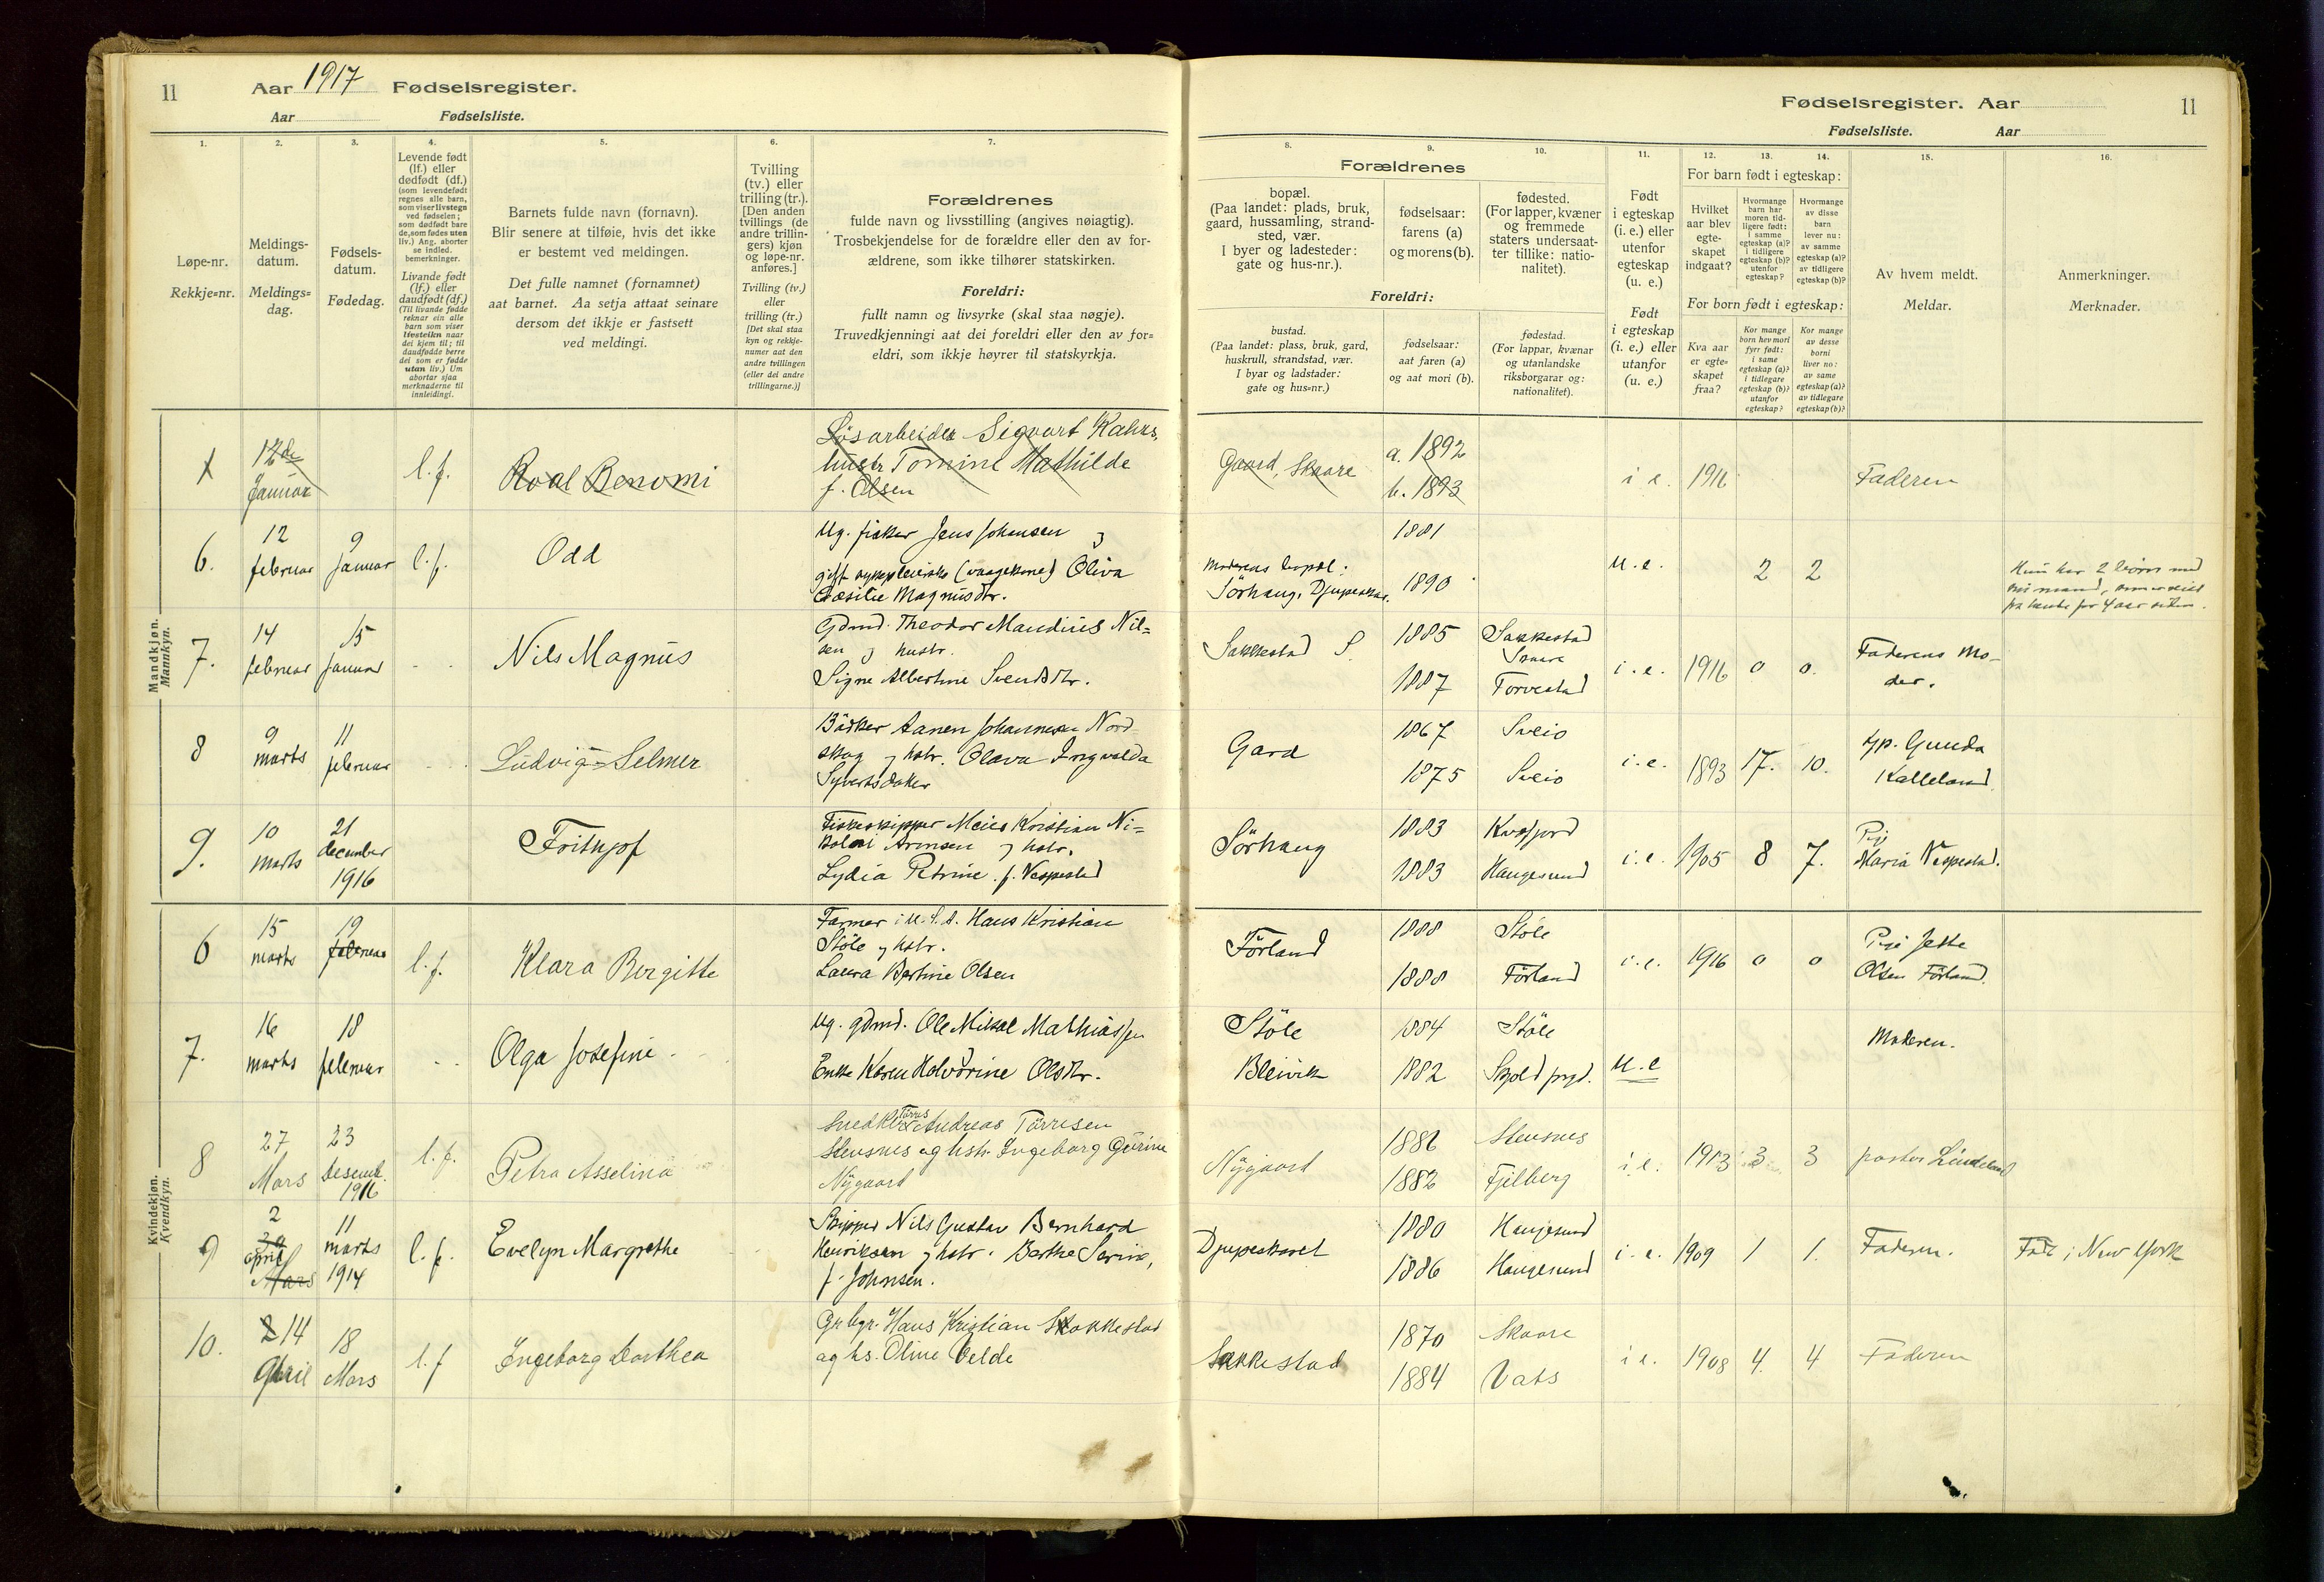 11
Aar 1917 Fødselsregister.
Aar Fødselsliste.
1.
2.
3.
4.
5.
6.
7.
Løpe-nr.
Rekkje-nr.
Meldings-
datum.
Meldings-
dag.
Fødsels-
datum.
Fødedag.
Levende født
(lf.) eller
dødfødt (df.)
(som levendefødt
regnes alle barn,
som viser livstegn
ved fødselen;
som dødfødt bare
de, som fødes uten
liv.) Ang. aborter
se indled.
bemerkninger.
Livande født
(lf.) eller
daudfødt (df.)
(Til livande fødde
reknar ein alle
barn som viser
livsteikn naar
dei kjem til; til
daudfødde berre
dei som er fødde
utan liv.) Um
abortar sjaa
merknaderne til
innleidingi.
Barnets fulde navn (fornavn).
Blir senere at tilføie, hvis det ikke
er bestemt ved meldingen.
Det fulle namnet (fornamnet)
aat barnet. Aa setja attaat seinare
dersom det ikkje er fastsett
ved meldingi.
Tvilling
(tv.) eller
trilling (tr.).
[Den anden
tvillings (de
andre trillin-
gers) kjøn
og løpe-nr.
anføres.]
Tvilling (tv.)
eller
trilling (tr.)
[Det skal staa
kyn og rekkje-
numer aat den
andre tvillingen
(eller dei andre
trillingarne.)]
Forældrenes
fulde navn og livsstilling (angives nøiagtig).
Trosbekjendelse for de forældre eller den av for-
ældrene, som ikke tilhører statskirken.
Foreldri:
fullt namn og livsyrke (skal staa nøgje).
Truvedkjenningi aat dei foreldri eller den av for-
eldri, som ikkje høyrer til statskyrkja.
Fødselsregister. Aar
11
Fødselsliste. Aar
8.
9.
10.
11.
12.
13.
14.
15.
16.
Forældrenes
bopæl.
(Paa landet: plads, bruk,
gaard, hussamling, strand-
sted, vær.
I byer og ladesteder:
gate og hus-nr.).
fødselsaar:
farens (a)
og morens (b).
fødested.
(For lapper, kvæner
og fremmede
staters undersaat-
ter tillike: natio-
nalitet).
Foreldri:
bustad.
(Paa landet: plass, bruk, gard,
huskrull, strandstad, vær.
I byar og ladstader:
gate og hus-nr.)
fødselsaar:
aat faren (a)
og aat mori (b).
fødestad.
(For lappar, kvænar
og utanlandske
riksborgarar og:
nationalitet).
Født
i egteskap
(i. e.) eller
utenfor
egteskap
(u. e.)
Født
i egteskap
(i. e.) eller
utanfor
(u. e.)
For barn født i egteskap:
Hvilket
aar blev
egte-
skapet
indgaat?
Hvormange
barn har
moren tid-
ligere født:
i samme
egteskap (a)?
i tidligere
egteskap (b)?
utenfor
egteskap?
Hvormange
av disse
barn
lever nu:
av samme
egteskap (a)?
av tidligere
egteskap (b)?
For born født i egteskap:
Kva aar
er egte-
skapet
fraa?
Kor mange
born hev mori
fyrr født:
i same
egteskap (a)?
i tidlegare
egteskap (b)?
utanfor
egteskap?
Kor mange
av desse
borni
liver no:
av same
egteskap (a)?
av tidlegare
egteskap (b)?
Av hvem meldt.
Meldar.
Anmerkninger.
Merknader.
Mandkjøn.
Mannkyn.
Januar l.f. Roal Benomi
Løsarbeider Sigvart
hustr Tomine Mathilde
f. Olsen
Gaard, Skaare a. 1892
b. 1893
i e. 1916 Faderen
6. 12 februar 9 Januar l.f. Odd
Ug. fisker Jens Johansen
Oliva
Magnusdtr.
Moderens bopæl:
Sørhaug, 1881
1890
u.e. 2 2
7. 14 februar 15 Januar Nils Magnus
Gdmd. Theodor Maudius Nil=
sen og hustr.
Signe Albertine Svendsdtr.
Sakkestad S. 1885 Sakkestad
Skaare
1887 Torvestad
i.e. 1916 0 0. Faderens Mo-
der.
8 9 marts 11 februar Ludvig Selmer
Bødker Aanen Johannesen Nord-
skog og hstr. Olava Ingvalda
Gard 1867 Sveio
1875 Sveio
i.e. 1893 17. 10. Gunda
Kalleland
9. 10 marts 21 december 1916 Frithjof
Fiskeskipper Meier Kristian Ni=
kolai Arnsen og hstr.
Lydia Petrine f. Vespestad
Sørhaug 1883 Kvæfjord
1883 Haugesund
i.e. 1905 8 7. Maria Vespestad.
Kvindekjøn.
Kvendkyn.
6 15 marts 19 februar l.f. Klara Bergitte
Farmer i U.S.A. Hans Kristian
Støle og hstr.
Laura Bertine Olsen
Førland 1888 Støle
1888 Førland
i.e. 1916 0 0 Pige Jette
Olsen Førland.
7. 16 marts 18 februar Olga Josefine
Ug. gdmd. Ole Mikal Mathiassen
Enke Karen Halvorine Olsdtr.
Støle
Bleivik 1884 Støle
1882 Skjold prgd.
u.e Moderen.
8 27 Mars 23 Desemb. 1916 l.f. Petra Asselina
Snedker Tørres Andreas Tørresen
Stensnes og hstr. Ingeborg Gurine
Nygaard
Nygaard 1886 Stensnes
1882 Fjelberg
i.e. 1913 3 3 pastor Lindeland
9 2 april Mars 11 marts 1914 l.f. Evelyn Margrethe
Skipper Nils Gustav Bernhard
Henriksen og hstr. Berthe Serine,
f. Johnsen.
Djupeskaret 1880 Haugesund
1886 Haugesund
i.e. 1909 1 1. Faderen. Født i New York
10. 14 April 18 Mars l.f Ingeborg Dorthea
Gr.bgr. Hans Kristian Sakkestad
og hs. Oline Velde
Sakkestad 1870 Skaare
1884 Vats
i e. 1908 4. 4 Faderen